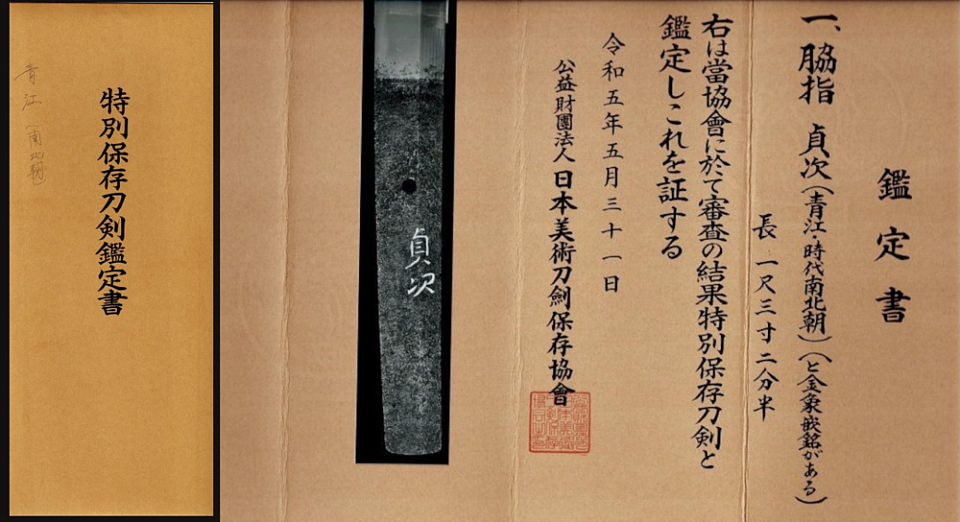 特別保存刀剣鑑定書
青江
(南北朝)
鑑定書
一、脇指 貞次(青江・時代南北朝)(と金象嵌銘がある)
長 一尺三寸二分半
右は當協會に於て審査の結果特別保存刀剣と
鑑定しこれを証する
令和五年五月三十一日
公益財團法人 日本美術刀剣保存協會
貞次